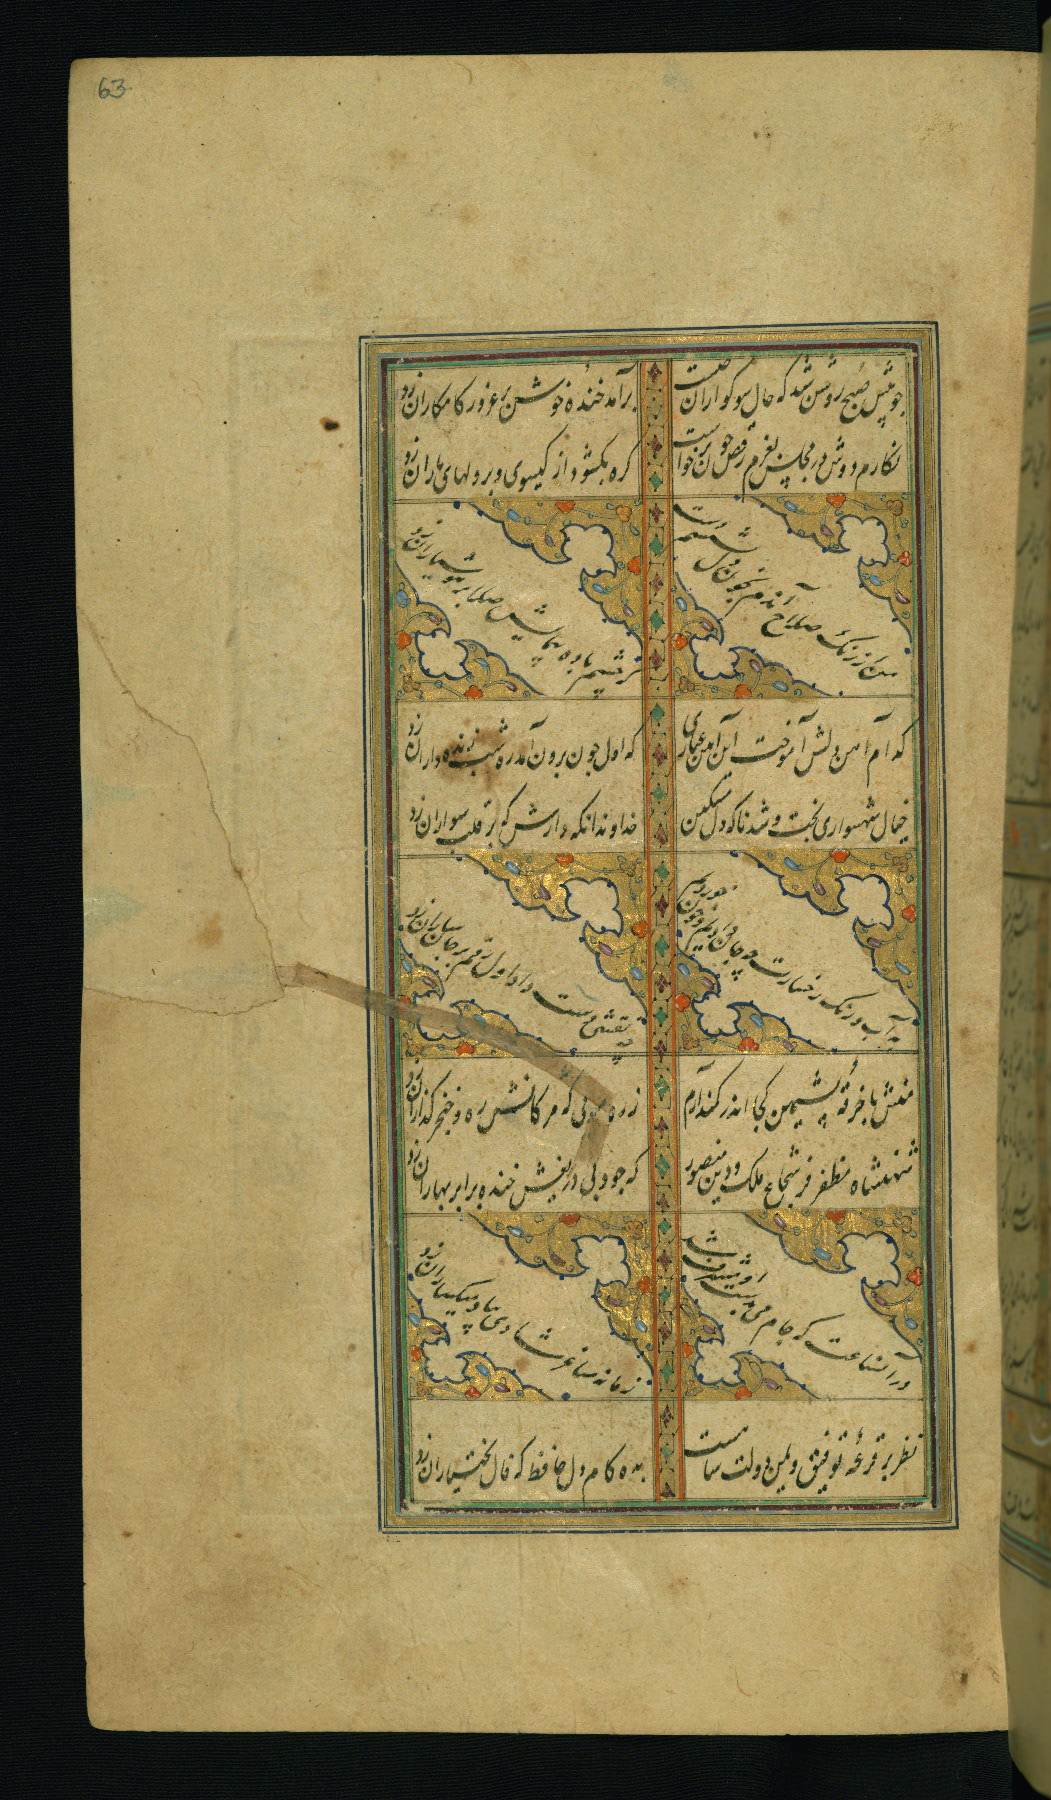 63
چو پیش صبح روشن شد که حال سوکواران چیست
برآمد خندهٔ خوش بر غرور کامکاران زد
نکارم دوش در مجلس بعزم رقص چون برخواست
کره بکشود از کیسوی و بر دلهای یاران زد
من از رنک صلاح آندم بخون دل بشستم دست
که چشم باده پیمایش صلا بر هوشیاران زد
کدام آهن دلش آموخت این آیین عیاری
که اول چون برون آمد ره شب زنده داران زد
خیال شهسواری پخت و شد ناکه دل مسکین
خداوندا نکه دارش که بر قلب سواران زد
در آب و رنک رخسارت چه جان دادیم و خون خوردیم
چو نقشش دست داد اول رقم بر جان سپاران زد
منش با خرقهٔ پشمین کجا اندر کمند آرم
زره مویی که مژکانش ره خنجر کذاران زد
شهنشاه مظفر فر شجاع ملک و دین منصور
که جود بی دریغش خنده بر ابر بهاران زد
در آنساعت که جام می بدست او مشرف شد
زمانه ساغر شادی بیاد میکساران زد
نظر بر قرعهٔ توفیق و یمن دولت شاهست
بده کام دل حافظ که فال بختیاران زد